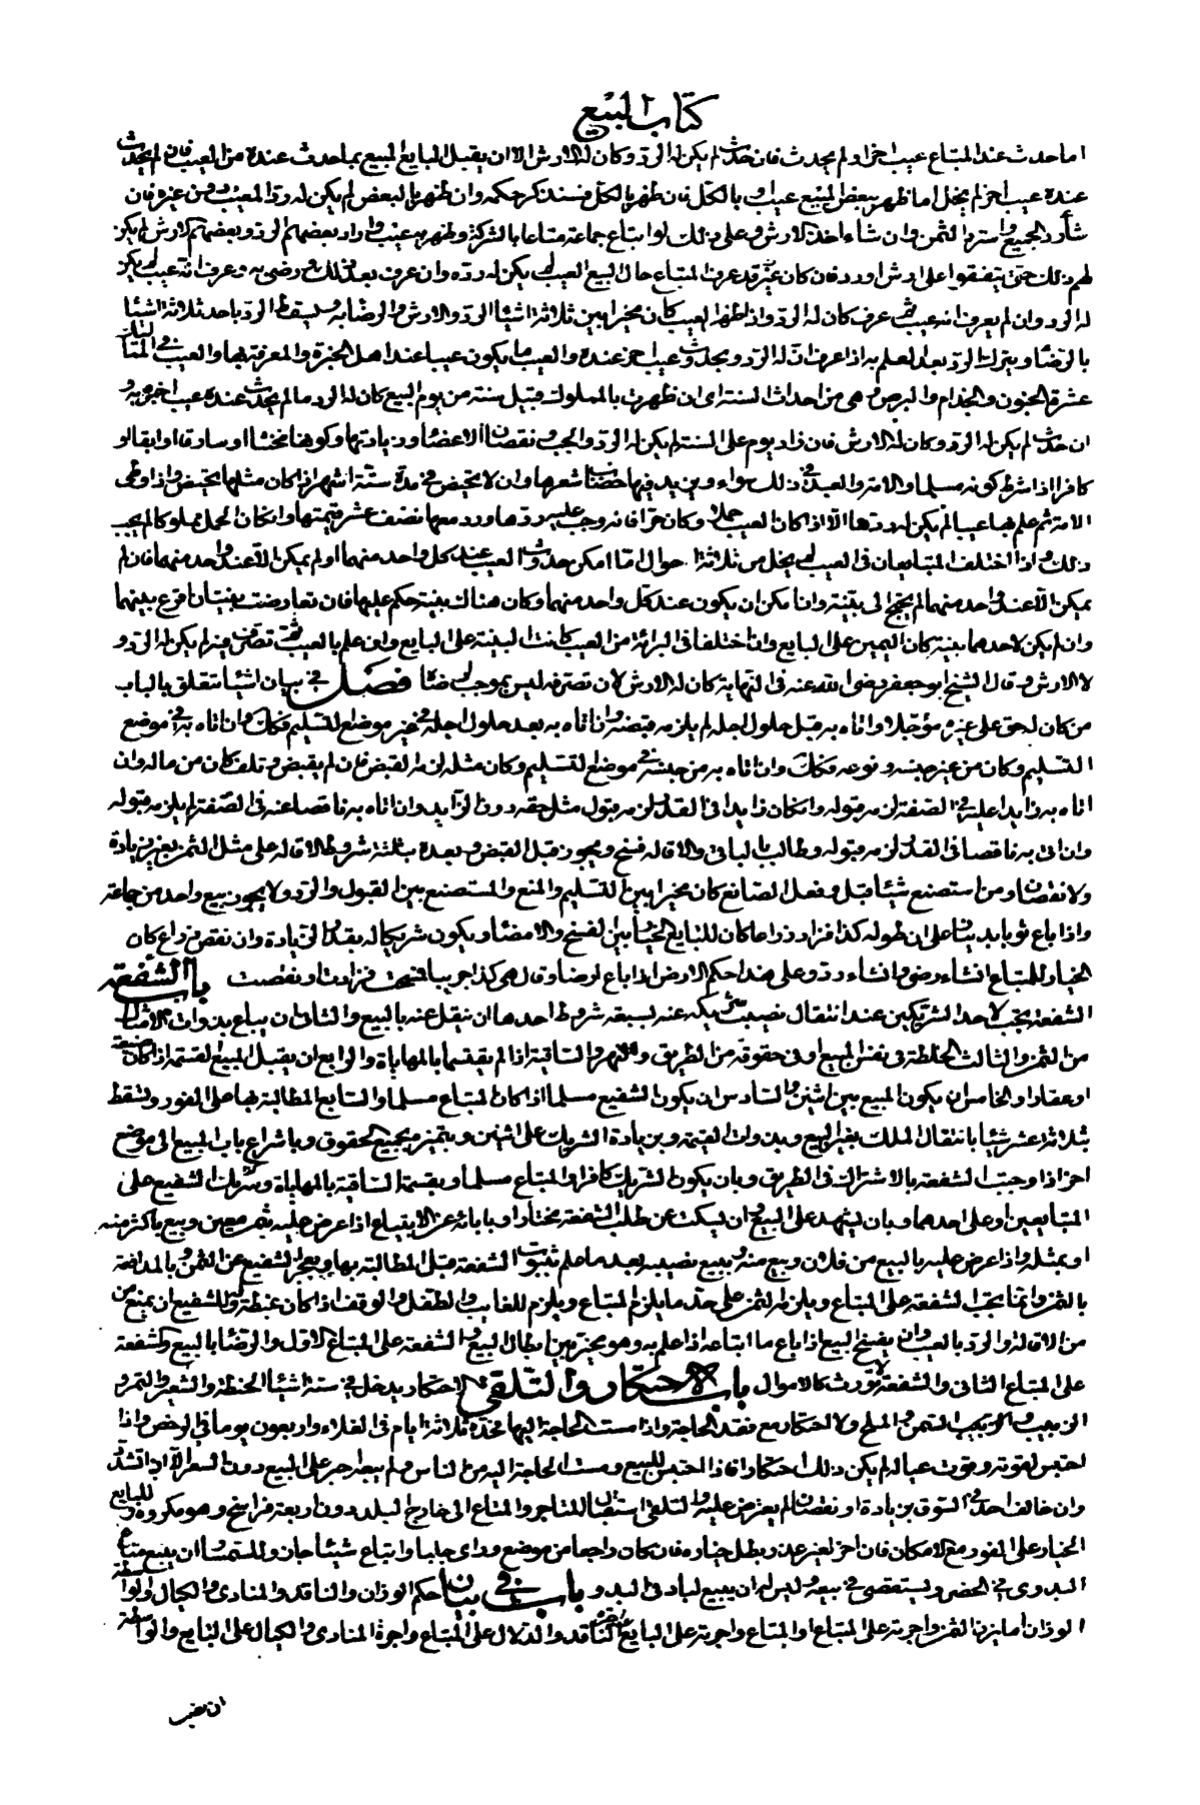 كتاب البيع
اما حدث عند المبتاع عيب اخر او لم يحدث فان حدث لم يكن له الرد و كان له الارش الا ان يقبل البايع المبيع بما حدث عنده من العيب فان لم يحدث
عنده عيب اخر لم يخل اما ظهر ببعض المبيع عيب او بالكل فان ظهر بالكل فسنذكر حكمه وان ظهر بالبعض لم يكن له رد المعيب دون غيره فان
شاء رد الجميع واسترد الثمن وان شاء اخذ الارش و على ذلك لو ابتاع جماعة متاعا بالشركة وظهر به عيب واراد بعضهم الرد وبعضهم الارش لم يكن
لهم ذلك حتى يتفقوا على ارش او رد فان كان قد عرف المبتاع حال البيع العيب لم يكن له رده وان عرف بعد ذلك و رضى به او عرف انه عيب لم يكن
له الرد وان لم يعرف انه عيب ثم عرف كان له الرد واذا ظهر العيب كان مخيرا بين ثلاثة اشيا الرد والارش والرضا به و يسقط الرد باحد ثلاثة اشيا
بالرضا و بترك الرد بعد العلم به اذا عرف ان له الرد و بحدوث عيب اخر عنده والعيب ما يكون عيبا عند اهل الخبرة والمعرفة بها والعيب في
عشرة الجنون والجذام والبرص و هي من احداث السنة اى ان ظهرت بالمملوك قبل سنة من يوم البيع كان له الرد ما لم يحدث عنده عيب اخر
ان حدث لم يكن له الرد وكان له الارش فان زاد يوم على السنة لم يكن له الرد والجب و نقصان الاعضا و زيادتها وكونه مخنثا او سارقا او ابقا او
كافرا اذا شرط كونه مسلما والامة والعبد في ذلك سواء و يزيد فيها شعرها وان لا تحيض في مدة ستة اشهر اذا كان مثلها تحيض واذا وطى
الامة ثم علم بها عيبا لم يكن له ردها الا اذا كان العيب حملا وكان حرا فانه وجب عليه ردها ورد معها نصف عشر قيمتها وان كان الحمل مملوكا لم يجب
ذلك و اذا اختلف المتبايعان في العيب لم يخل من ثلاثة احوال اما امكن حدوث العيب عند كل واحد منهما او لم يمكن الا عند واحد منهما فان لم
يمكن الا عند واحد منهما لم يحتج الى بينة وان امكن ان يكون عند كل واحد منهما وكان هناك بينة حكم عليها فان تعارضت بينتان اقرع بينهما
وان لم يكن لاحدهما بينة كان اليمين على البايع وان اختلفا في البرائة من العيب كانت البينة على البايع وان علم بالعيب ثم تصرف فيه لم يكن له الرد و
لا الارش و قال الشيخ ابو جعفر رضى الله عنه في النهاية كان له الارش لان تصرفه ليس بموجب لرضا فصل في بيان اشيا تتعلق بالباب
من كان له حق على غيره مؤجلا و اتاه به قبل حلول اجله لم يلزمه قبضه وان اتاه به بعد حلول اجله في غير موضع التسليم فكذلك وان اتاه به في موضع
التسليم وكان من غير جنسه و نوعه فكذلك وان اتاه به من جنسه في موضع التسليم وكان مثله لزمه القبض فان لم يقبض و تلف كان من ماله وان
اتاه به زايدا عليه في الصفة لزمه قبوله وان كان زايدا في القدر لزمه قبول مثل حقه دون الزايد وان اتاه به ناقصا عنه في الصفة لم يلزمه قبوله
وان اتى به ناقصا في القدر لزمه قبوله وطالب بالباقى والاقاله فسخ و يجوز قبل القبض و بعده بثلثة شروط الاقاله على مثل الثمن بغير زيادة
ولا نقصان و من استصنع شيئا قبل و فعل الصانع كان مخيرا بين التسليم والمنع والمستصنع بين القبول والرد ولا يجوز بيع واحد من جماعة
واذا باع ثوبا بدينار على ان طوله كذا فزاد ذراعا كان للبايع الخيار بين الفسخ والامضا و يكون شريكا له بقدر الزيادة وان نقص ذراع كان
الخيار للمبتاع ان شاء رضى وان شاء رد و على هذا حكم الارض اذا باع ارضا و قال هي كذا جريبا فزادت او نقصت باب الشفعة
الشفعة تجب لاحد الشريكين عند انتقال نصيب شريكه عنه بسبعة شروط احدها ان ينتقل عنه بالبيع والثانى ان يباع بذوات الامثال
من الثمن والثالث الخلطة في نفس المبيع او في حقوقه من الطريق والنهر والساقية اذا لم يقتسما بالمهاياة والرابع ان يقبل المبيع القسمة اذا كان ضيعة
او عقارا والخامس ان يكون المبيع بين اثنين والسادس ان يكون الشفيع مسلما اذا كان المبتاع مسلما والسابع المطالبة بها على الفور وتسقط
بثلاثة عشر شيئا بانتقال الملك بغير البيع و بذوات القيمة و بزيادة الشريك على اثنين و بتميز جميع الحقوق و باشراع باب المبيع الى موضع
اخر اذا وجبت الشفعة بالاشتراك في الطريق و بان يكون الشريك كافرا والمبتاع مسلما و بقسمة الساقية بالمهاياة و بترك الشفيع على
المتبايعين او على احدهما و بان يشهد على البيع وان يسكت عن طلب الشفعة مختارا و بابائه عن الابتياع اذا عرض عليه بثمن معين و بيع باكثر منه
او بمثله واذا عرض عليه بالبيع من فلان و بيع منه و ببيع نصيبه بعد ما علم ثبوت الشفعة قبل المطالبة بها و بعجز الشفيع عن الثمن و بالمدافعة
بالثمن وانما تجب الشفعة على المبتاع و يلزمه الثمن على حد ما يلزم المبتاع و يلزم للغايب والطفل والوقف اذا كان غبطة له وللشفيع ان يمنع من
من الاقالة والرد بالعيب وان يفسخ البيع اذا باع ما ابتاعه اذا علم به و هو مخير بين ابطال البيع و الشفعة على المبتاع الاول والرضا بالبيع والشفعة
على المبتاع الثانى والشفعة لا تورث كالاموال باب الاحتكار والتلقى الاحتكار يدخل في ستة اشيا الحنطة والشعير والتمر و
الزبيب والسمن و الملح و لا احتكار مع فقد الحاجة واذا مست الحاجة اليها فحده ثلاثة ايام في الغلاء واربعون يوما في الرخص واذا
احتبس لقوته و قوت عياله لم يكن ذلك احتكارا فاذا احتبس للبيع و مست الحاجة اليه من الناس و لم يبعه اجبر على البيع دون السعر الا اذا تشدد
وان خالف احد في السوق بزيادة او نقصان لم يعترض عليه والتلقى استقبال للتاجر والمتاع الى خارج البلد دون اربعة فراسخ و هو مكروه وللبايع
الخيار على الفور مع الامكان فان اخر لغير عذر بطل خياره فان كان راجعا من موضع و راى جلبا وابتاع شيئا جاز و للسمسار ان يبيع متاع
البدوى في الحضر و يستقصى في بيعه وليس له ان يبيع لباد في البدو باب في بيان حكم الوزان والناقد والمنادى والكيال والواسطة
الوزان اما يزن الثمن واجرته على المبتاع او المتاع واجرته على البايع واجرة الناقد والدلال على المبتاع واجرة المنادى والكيال على البايع والواسطة
ان نصب